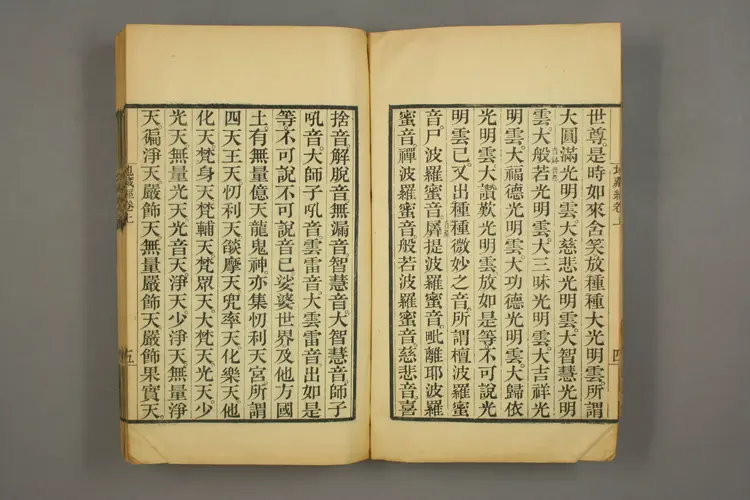 世尊。是時如來含笑放種種大光明雲。所謂
大圓滿光明雲。大慈悲光明雲。大智慧光明
雲。大般若光明雲。大三昧光明雲。大吉祥光
明雲。大福德光明雲。大功德光明雲。大歸依
光明雲。大讚歎光明雲。放如是等不可說光
明雲已。又出種種微妙之音。所謂檀波羅蜜
音。尸波羅蜜音。羼提波羅蜜音。毗離耶波羅
蜜音。禪波羅蜜音。般若波羅蜜音。慈悲音。喜
地藏經卷上
四
捨音。解脫音。無漏音。智慧音。大智慧音。師子
吼音。大師子吼音。雲雷音。大雲雷音。出如是
等不可說不可說音已。娑婆世界及他方國
土。有無量億天龍鬼神。亦集忉利天宮。所謂
四天王天。忉利天。燄摩天。兜率天。化樂天。他
化天。梵身天。梵輔天。梵眾天。大梵天。光天。少
光天。無量光天。光音天。淨天。少淨天。無量淨
天。徧淨天。嚴飾天。無量嚴飾天。嚴飾果實天。
地藏經卷上
五